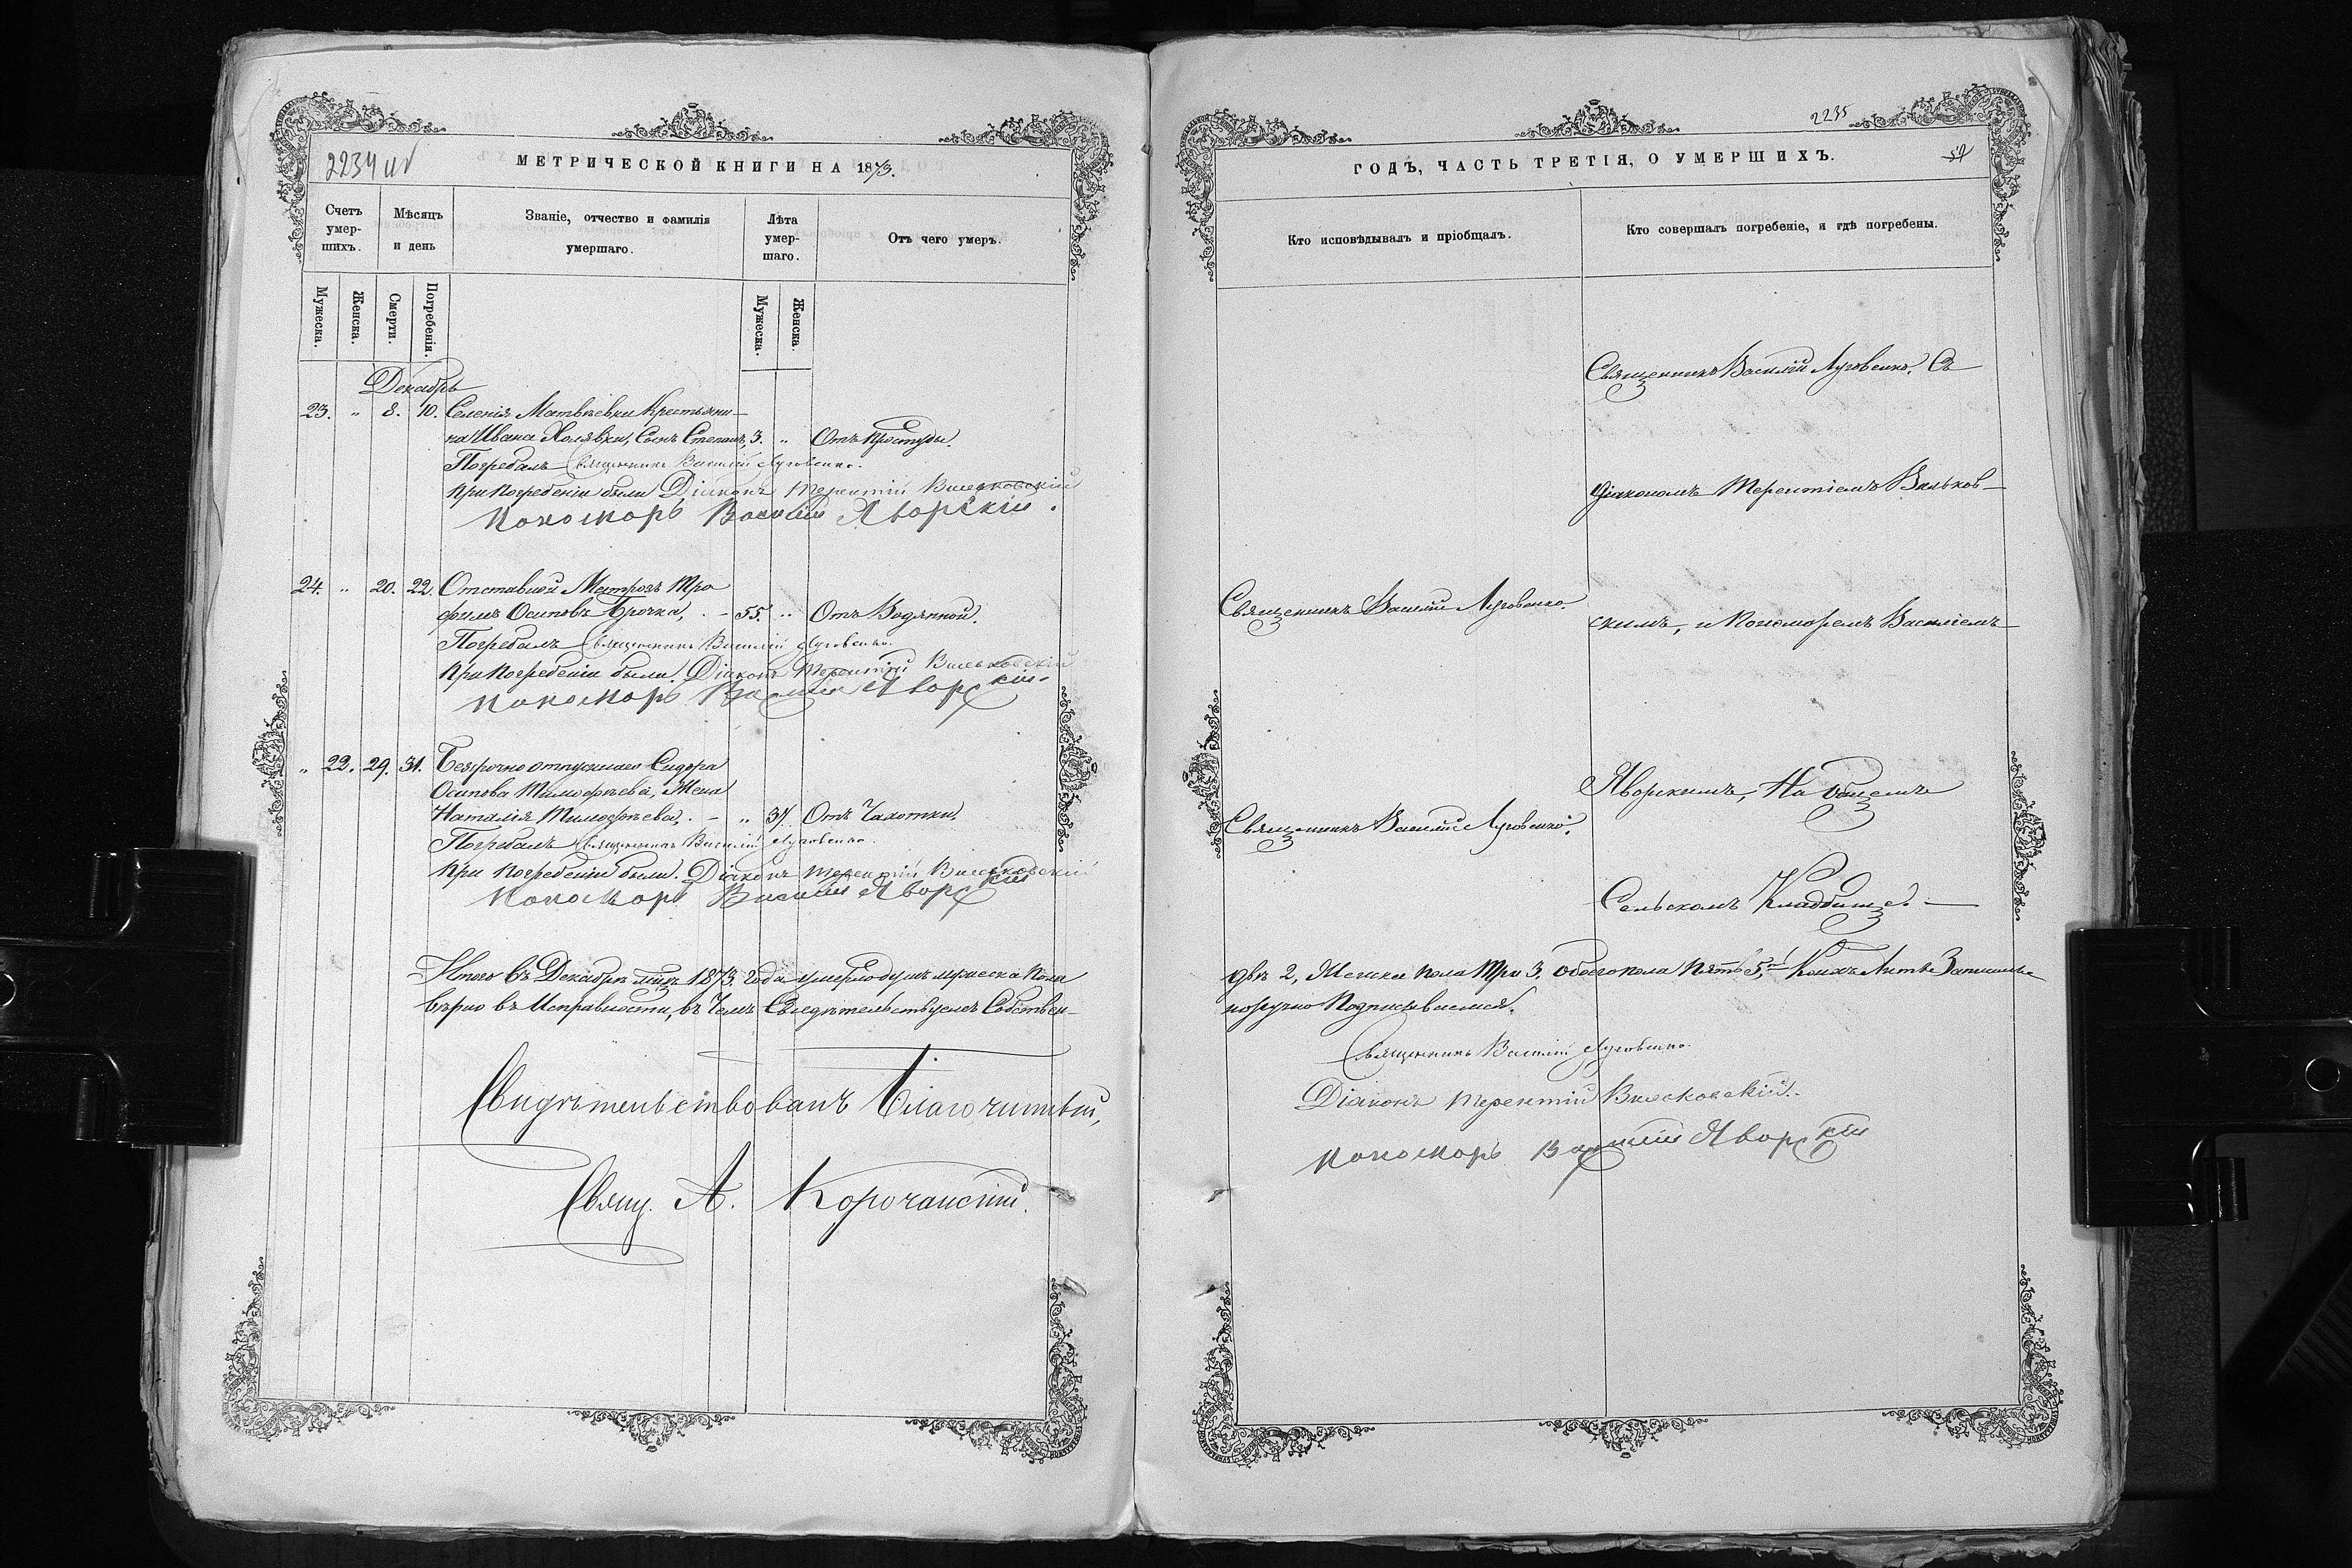 2234 и
МЕТРИЧЕСКОЙ КНИГИ НА 1873.
Счетъ умер-шихъ.
Мѣсяцъ и день
Званіе, отчество и фамилія умершаго.
Лѣта умер-шаго.
Отъ чего умеръ.
Мужеска.
Женска.
Смерти.
Погребенія.
Мужеска.
Женска.
Декабрь
23. „ 8. 10. Селенія Матвѣевки Крестьяни-
на Ивана Холявки, Сынъ Степанъ, 3. „ Отъ Простуды.
Погребалъ Священникъ Василій Луговенко.
При Погребеніи были Діаконъ Терентій Вильковскій
Пономарь Василій Яворскій.
24. „ 20. 22. Отставной Матрозъ Тро
фимъ Осиповъ Брочка, - 55. „ Отъ Водянной.
Погребалъ Священникъ Василій Луговенко.
При Погребеніи были. Діаконъ Терентій Вильковскій
Пономарь Василій Яворскій.
„ 22. 29. 31. Безсрочно отпускнаго Сидора
Осипова Тимофѣева, Жена
Наталія Тимофѣева, - „ 37. Отъ Чахотки.
Погребалъ Священникъ Василій Луговенко.
При Погребеніи были. Діаконъ Терентій Вильковскій
Пономарь Василій Яворскій
Итого въ Декабрѣ мцѣ 1873. Года умерло душъ мужеска Пола
вѣрно въ Исправности, въ Чемъ Свидѣтельствуемъ Собствен-
Свидѣтельствовалъ Благочинный,
Свящ. А. Корочанскій.
2235
ГОДЪ, ЧАСТЬ ТРЕТІЯ, О УМЕРШИХЪ.
Кто исповѣдывалъ и пріобщалъ.
Кто совершалъ погребеніе, и гдѣ погребены.
Священникъ Василій Луговенко. Съ
Діакономъ Терентіемъ Вильков-
Священникъ Василій Луговенко.
скимъ, и Пономоремъ Василіемъ
Яворскимъ, На Общемъ
Священникъ Василій Луговенко.
Сельскомъ Кладбище. —
двѣ 2, Женска пола Три 3, обоего пола Пять 5, Коихъ Записанье
норучно Подписываемся.
Священникъ Василій Луговенко.
Діаконъ Терентій Вильковскій.
Пономарь Василій Яворскій